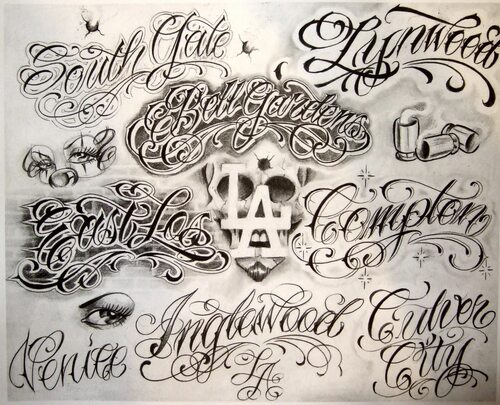 South Gate
Lynwood
Bell Gardens
LA
East Los
Compton
Venice
Inglewood
LA
Culver
City